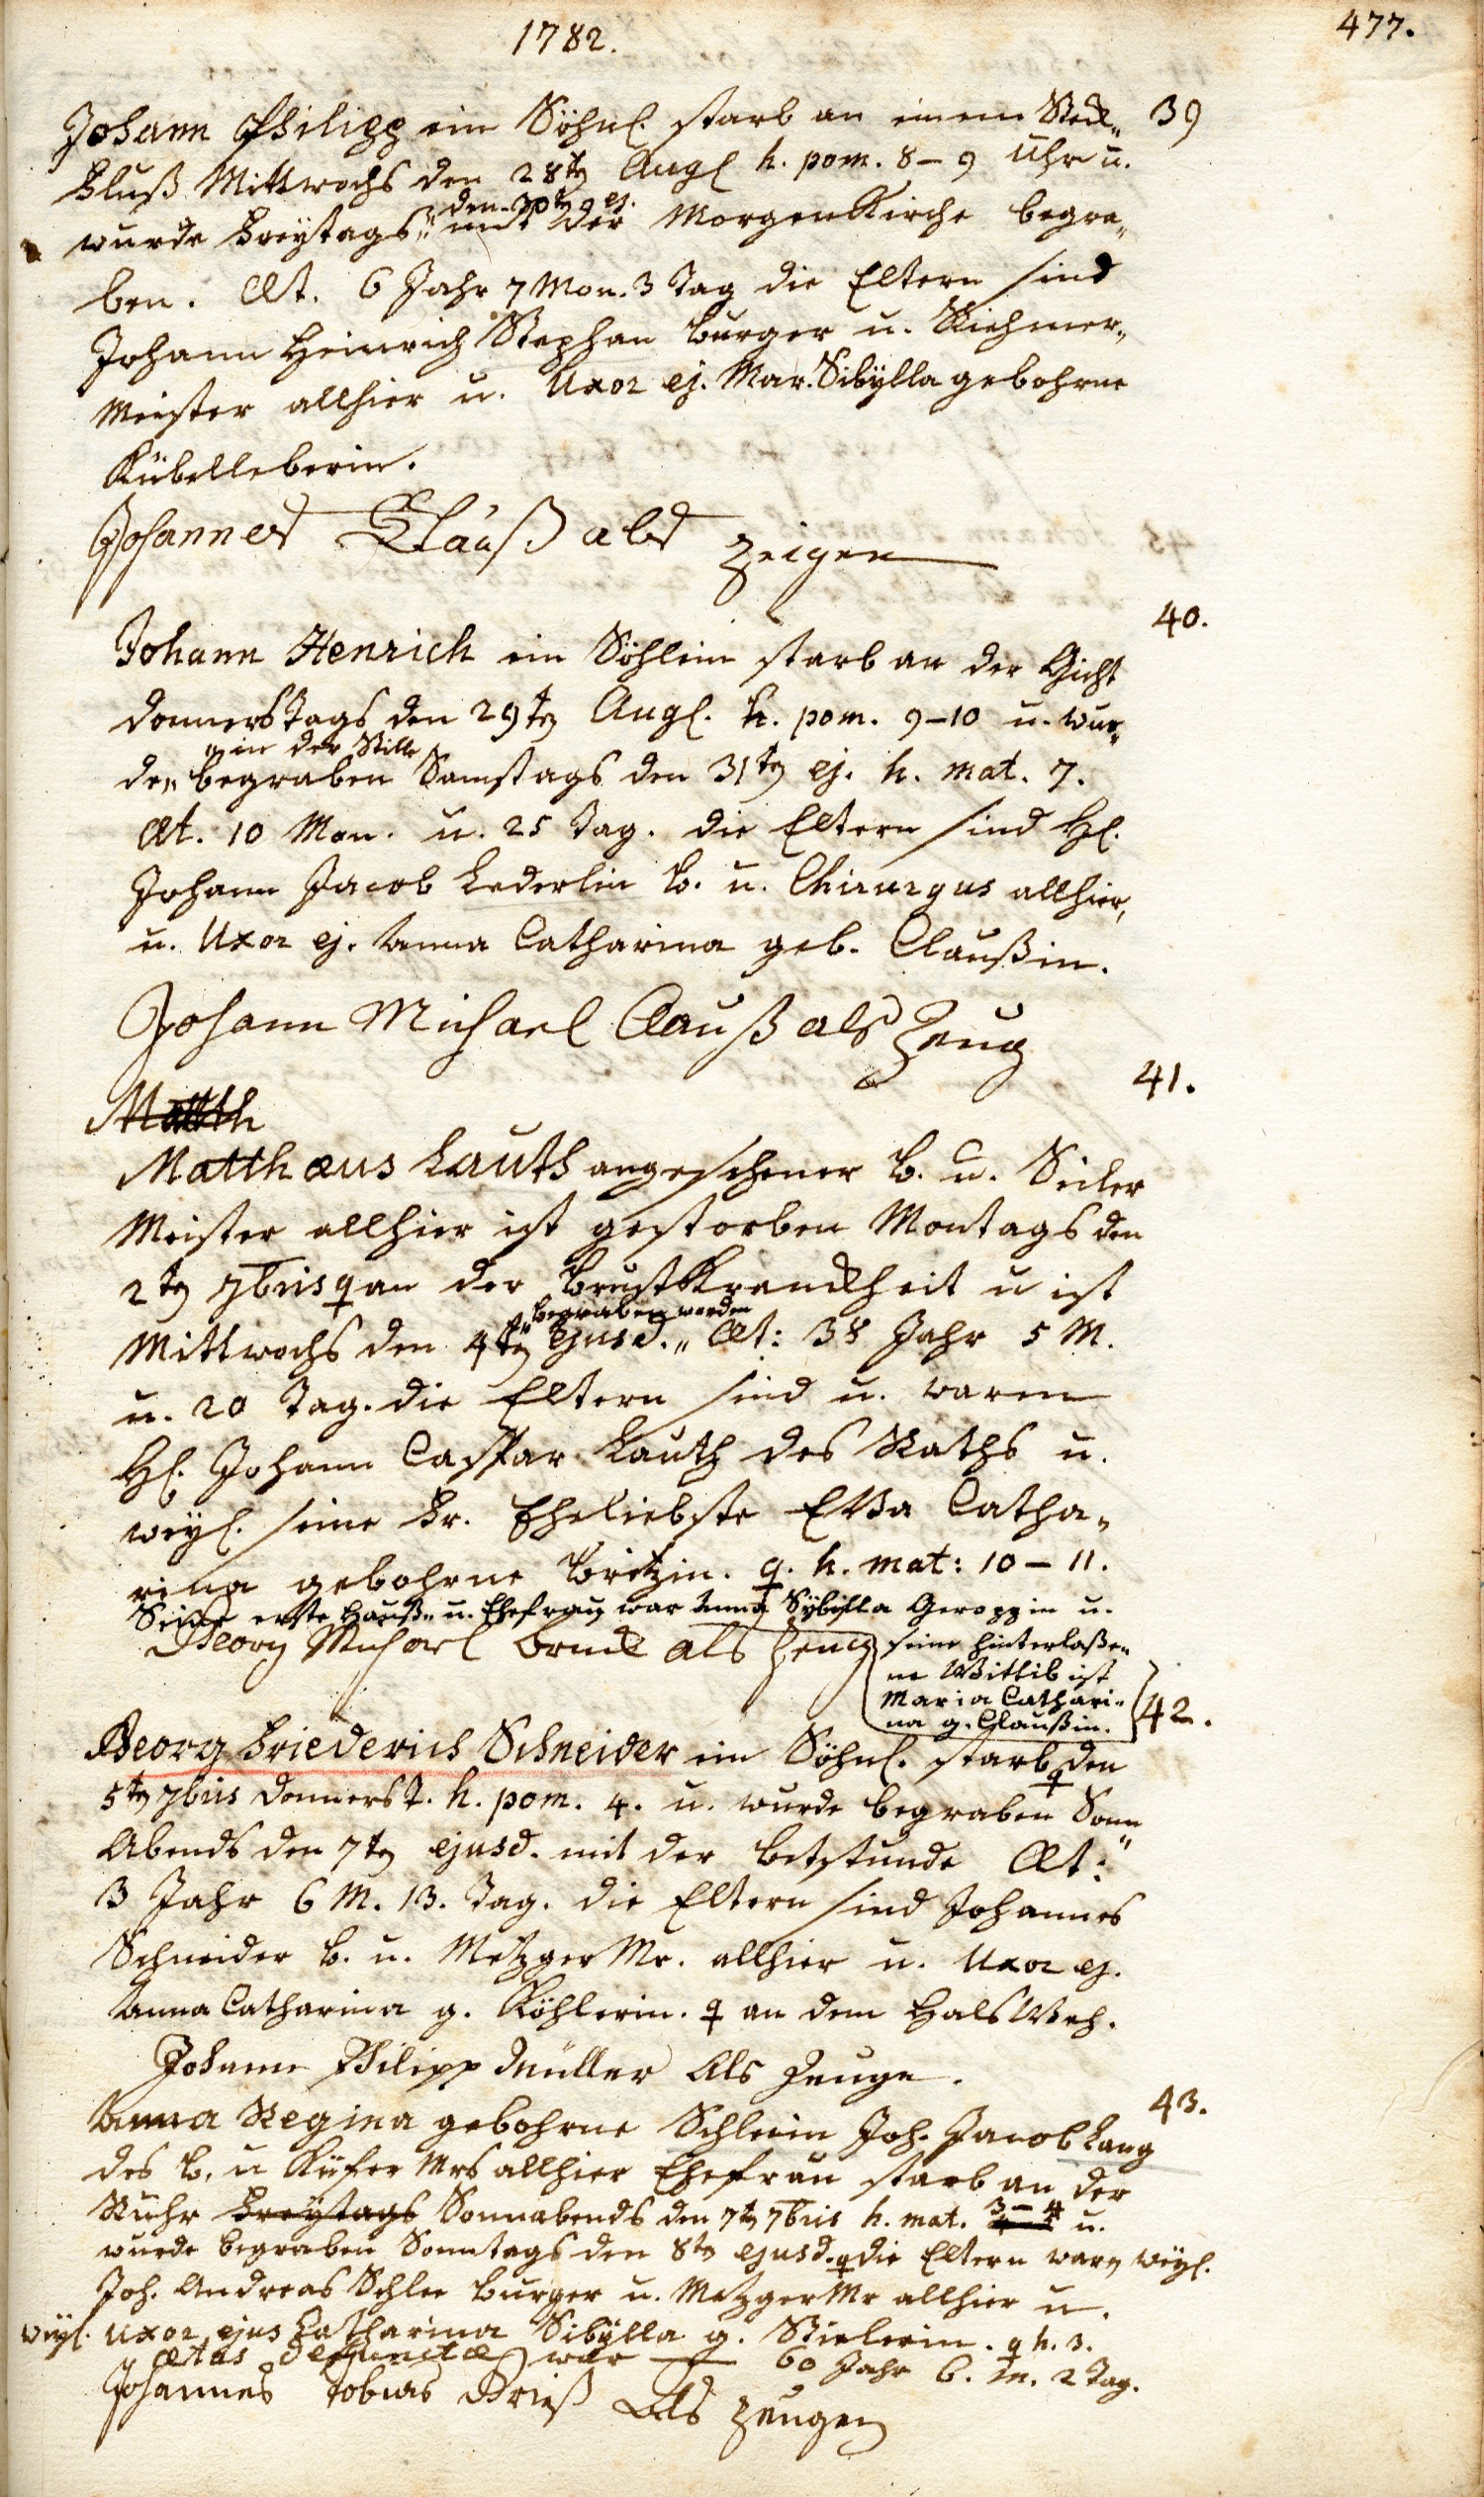 1782.
477.
Johann Philipp ein Söhnl. starb an einem Steck„ 39
Fluß Mittwochs den 28te Augl h. pom. 8–9 Uhr u.
den 30te ej.
wurde Freytags „ mit der Morgen Kirche begra„
ben. Æt. 6 Jahr 7 Mon. 3 Tag die Eltern sind
Johann Heinrich Stephan Burger u. Kiehmer„
Meister allhier u. Uxor ej. Mar. Sibÿlla gebohrne
Kübelleberin.
Johannes Klauß als zeigen
40.
Johann Henrich ein Söhlein starb an der Gicht
Donnerstags den 29te Augl. h. pom. 9–10 u. wur„
in der Stille
de „ begraben Samstags den 31te ej. h. mat. 7.
Æt. 10 Mon. u. 25 Tag. die Eltern sind Hl.
Johann Jacob Lederlin b. u. Chirurgus allhier,
u. Uxor ej. Anna Catharina geb. Claußin.
Johann Michael Clauß als Zeug
41.
Matth
Matthæus Lauth angesehener B. u. Seiler
Meister allhier ist gestorben Montags den
2te 7bris an der BrustKranckheit u ist
begraben worden
Mittwochs den 4te ejusd. „ Æt: 38 Jahr 5 M.
u. 20 Tag. die Eltern sind u. waren
Hl. Johann Caspar Lauth des Raths u.
weyl. seine Fr. Eheliebste EVa Catha„
rina gebohrne Britzin. h. mat: 10–11.
Seine erste Hauß„ u. Ehefrau war Anna Sÿbÿlla Geroppin u.
Georg Michael Bruck als Zeug
seine hinterlaßen„
ne Wittib ist
Maria Cathari„
na g. Claußin.
42.
Georg Friederich Schneider ein Söhnl. starb den
5te 7bris Donnerst. h. pom. 4. u. wurde begraben Sonn„
Abends den 7te ejusd. mit der Betstunde Æt:
3 Jahr 6 M. 13. Tag. die Eltern sind Johannes
Schneider b. u. Metzger Mr. allhier u. Uxor ej.
Anna Catharina g. Köhlerin. an dem HalsWeh.
Johann Philipp Müller Als Zeuge.
43.
Anna Regina gebohrne Schleein Joh. Jacob Lang
des b. u Küfer Mrs allhier Ehefrau starb an der
Ruhr Freytags Sonnabends den 7te 7bris h. mat. 3–4 u.
wurde begraben Sonntags den 8te ejusd. die Eltern warn weyl.
Joh. Andreas Schlee Burger u. Metzger Mr allhier u.
weyl. Uxor ejus Catharina Sibÿlla g. Stielerin. h. 3.
ætas defunctæ war 60 Jahr 6. M. 2 Tag.
Johannes Tobias Grieß Als zeugen